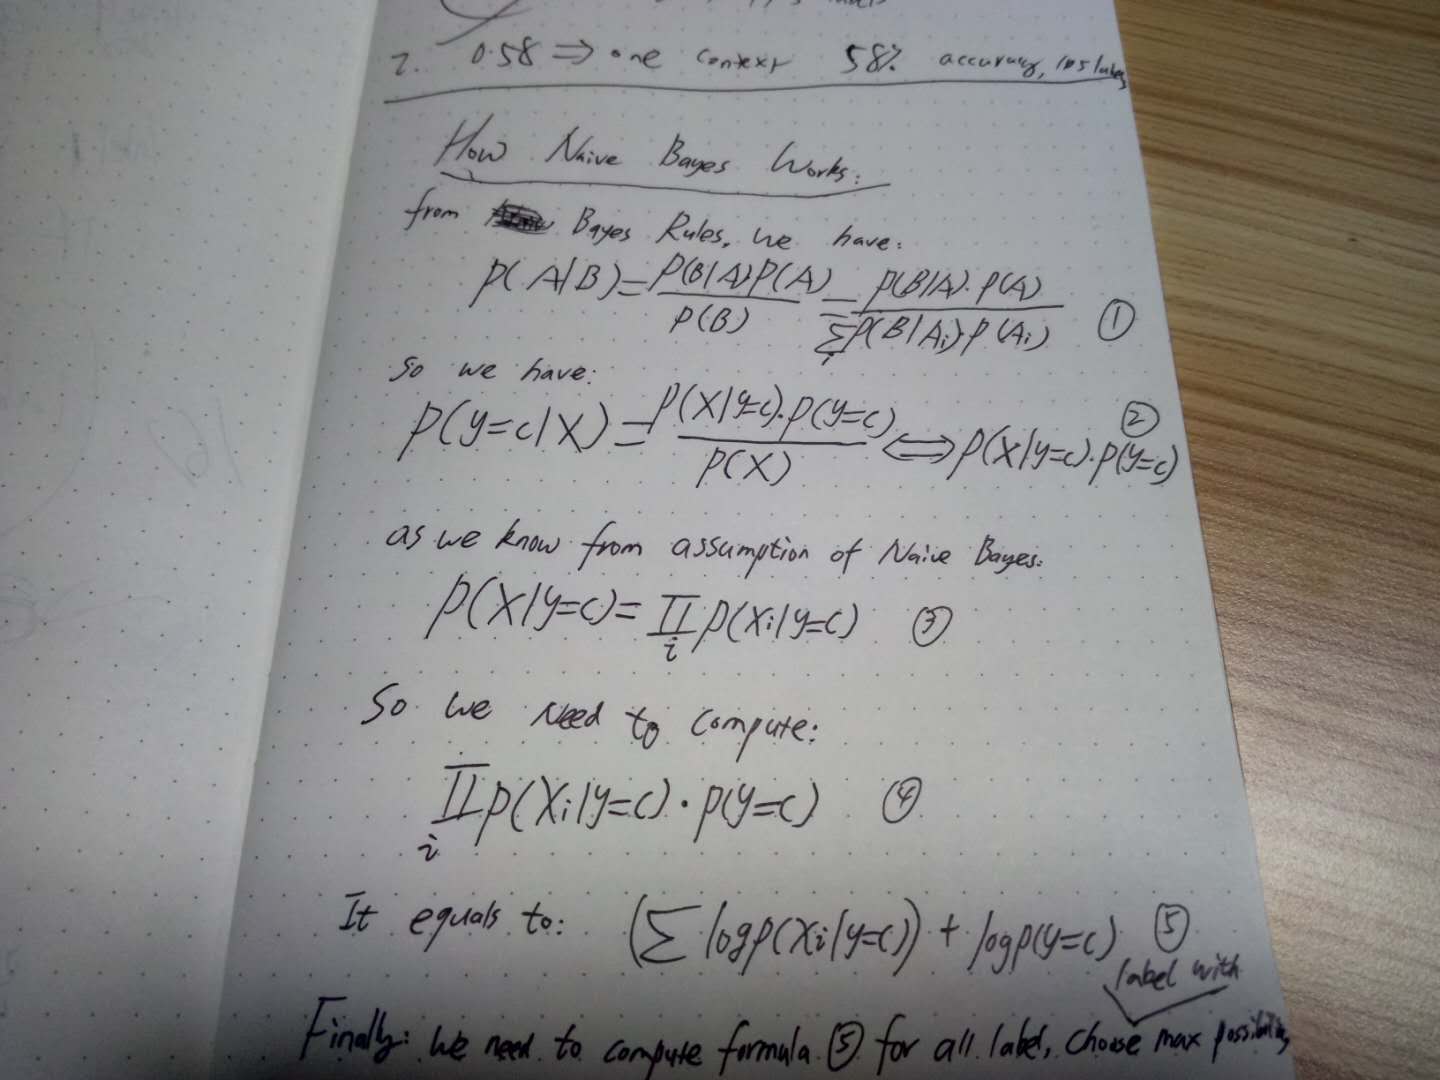 2. 0.58 ⇒ one context 58% accuracy,
How Naive Bayes Works:
from Bayes Rules, we have:
P(A|B) = P(B|A)P(A) / P(B) = P(B|A)·P(A) / ∑i P(B|Ai)P(Ai) ①
So we have:
P(y=c|X) = P(X|y=c)·P(y=c) / P(X) ⟺ P(X|y=c)·P(y=c) ②
as we know from assumption of Naive Bayes:
P(X|y=c) = ∏i P(Xi|y=c) ③
So we need to compute:
∏i P(Xi|y=c)·P(y=c) ④
It equals to: (∑ log P(Xi|y=c)) + log P(y=c) ⑤
label with
Finally: we need to compute formula ⑤ for all label, choose max possibility